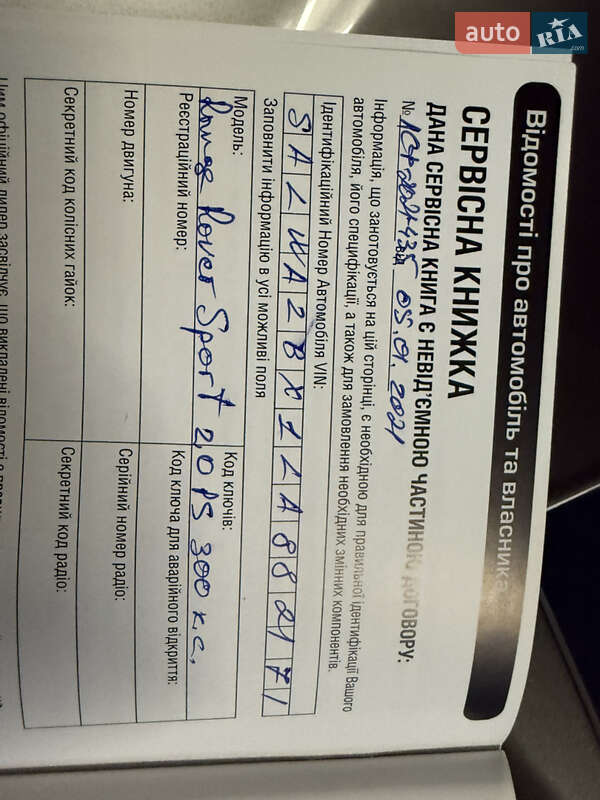 auto RIA.com
Відомості про автомобіль та власника
СЕРВІСНА КНИЖКА
ДАНА СЕРВІСНА КНИГА Є НЕВІД'ЄМНОЮ ЧАСТИНОЮ ДОГОВОРУ:
№ від 05.01.2021
Інформація, що занотовується на цій сторінці, є необхідною для правильної ідентифікації Вашого
автомобіля, його специфікації, а також для замовлення необхідних змінних компонентів.
Ідентифікаційний Номер Автомобіля VIN:
S A L W A 2 B X 1 L A 8 8 2 1 7 1
Заповнити інформацію в усі можливі поля
Модель:
Range Rover Sport 2,0 PS 300 к.с.
Код ключів:
Реєстраційний номер:
Код ключа для аварійного відкриття:
Номер двигуна:
Серійний номер радіо:
Секретний код колісних гайок:
Секретний код радіо: